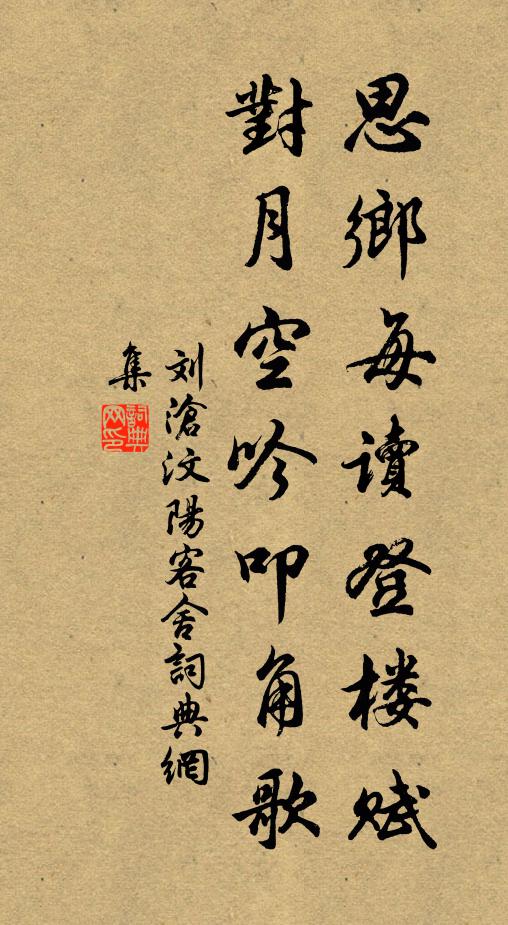 思鄉每讀登楼赋
對月空吟叩角歌
刘滄汶陽客舍詞典網
集
詞典网印